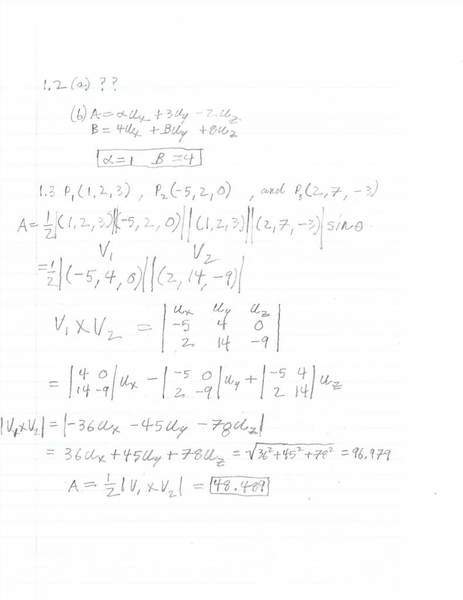 1.2 (a) ??
(b) A = αUx + 3Uy - 2Uz
B = 4Ux + BUy + 8Uz
α = 1 B = 4
1.3 P₁(1,2,3), P₂(-5,2,0), and P₃(2,7,-3)
A = 1/2 |(1,2,3)||(-5,2,0)| ||(1,2,3)||(2,7,-3)| sin θ
V₁ V₂
= 1/2 |(-5,4,0)||(2,14,-9)|
V₁ x V₂ = | Ux Uy Uz |
| -5 4 0 |
| 2 14 -9 |
= |4 0; 14 -9| Ux - |-5 0; 2 -9| Uy + |-5 4; 2 14| Uz
|V₁xV₂| = |-36Ux - 45Uy - 78Uz|
= 36Ux + 45Uy + 78Uz = √(36² + 45² + 78²) = 96.979
A = 1/2 |V₁ x V₂| = 48.489